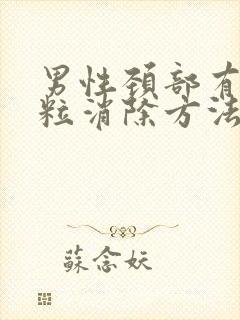 男性颈部有
粒消除方法
蘇念妖